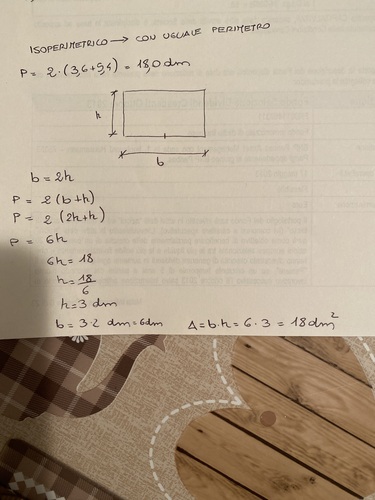 ISOPERIMETRICO → CON UGUALE PERIMETRO
P = 2·(3,6+5,4) = 18,0 dm
h
b
b = 2h
P = 2(b+h)
P = 2 (2h+h)
P = 6h
6h = 18
h = 18/6
h = 3 dm
b = 3·2 dm = 6dm A = b·h = 6·3 = 18 dm²